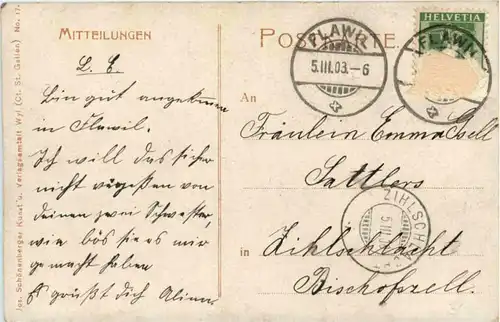 Jos. Schönenberger Kunst- u. Verlagsanstalt Wyl (Ct. St. Gallen) No. 17.
MITTEILUNGEN
L. E.
Bin gut angekommen
in Flawil.
Ich will das sicher
nicht vergessen von
deinen zwei Schwester,
wie bös sie es mir
gemacht haben
Es grüßt dich Aline.
POSTKARTE.
HELVETIA
FLAWIL
5.III.03.-6
FLAWIL
An
Fräulein Emma Gsell
Sattlers
ZIHLSCHL
5 III 03
in
Zihlschlacht
Bischofszell.